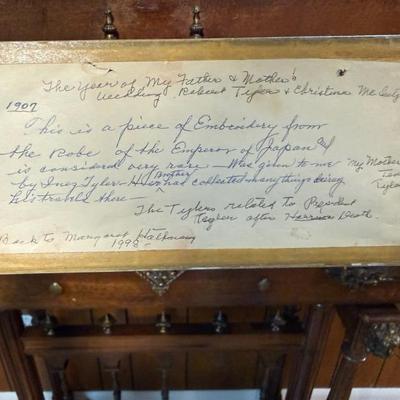 The Year of My Father & Mother's
Wedding. Robert Tyler & Christina Mc
1907
This is a piece of Embroidery from
the Robe of the Emperor of Japan &
is considered very rare — Was given to me My Mother
by Inez Tyler — Her Brother had collected many things during
his travels there —
The Tylers related to President
Tyler after Harrison Death.
Back to Margaret
1998